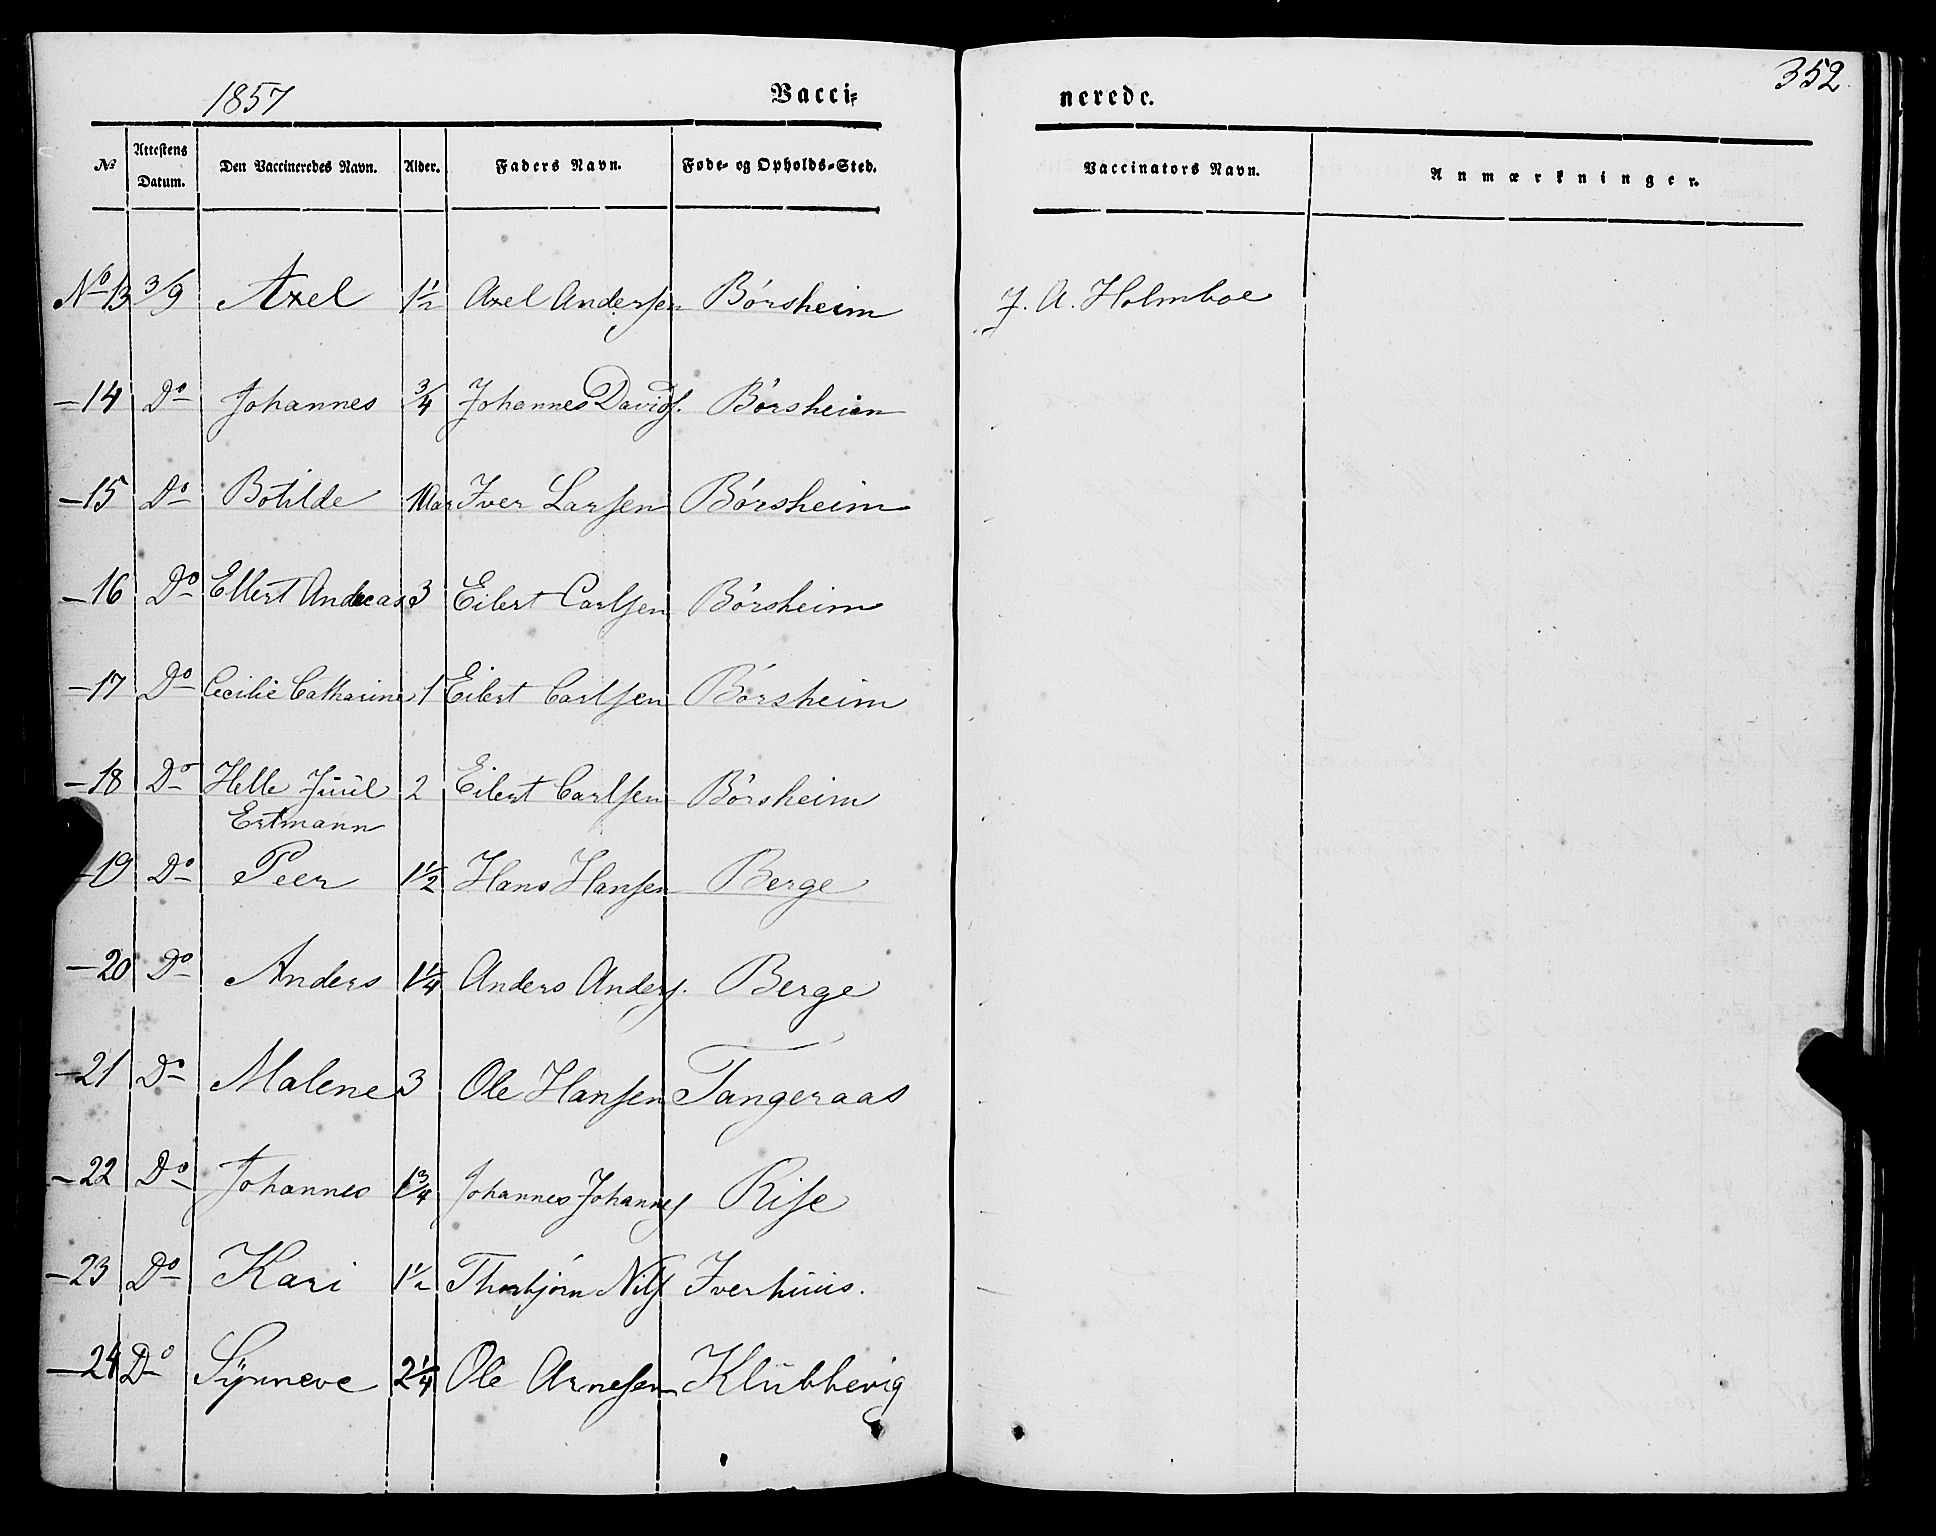 352.
1857 Vacci= nerede.
No Attestens Datum. Den Vaccineredes Navn. Alder. Faders Navn. Føde- og Opholds-Sted. Vaccinators Navn. Anmærkninger.
No 13 3/9 Axel 1½ Axel Andersen Børsheim J. A. Holmboe
—14 Do Johannes ¾ Johannes Davids. Børsheim
—15 Do Botilde 1 Aar Iver Larsen Børsheim
—16 Do Ellert Andreas 3 Eilert Carlsen Børsheim
—17 Do Cecilie Catharine 1 Eilert Carlsen Børsheim
—18 Do Helle Juul 2 Eilert Carlsen Børsheim
Ertmann
—19 Do Peer 1½ Hans Hansen Berge
—20 Do Anders 1¼ Anders Anders. Berge
—21 Do Malene 3 Ole Hansen Tangeraas
—22 Do Johannes 1¾ Johannes Johanns Rise
—23 Do Kari 1½ Thorbjørn Nils Iverhuus.
—24 Do Synneve 2¼ Ole Arnesen Klubbevig